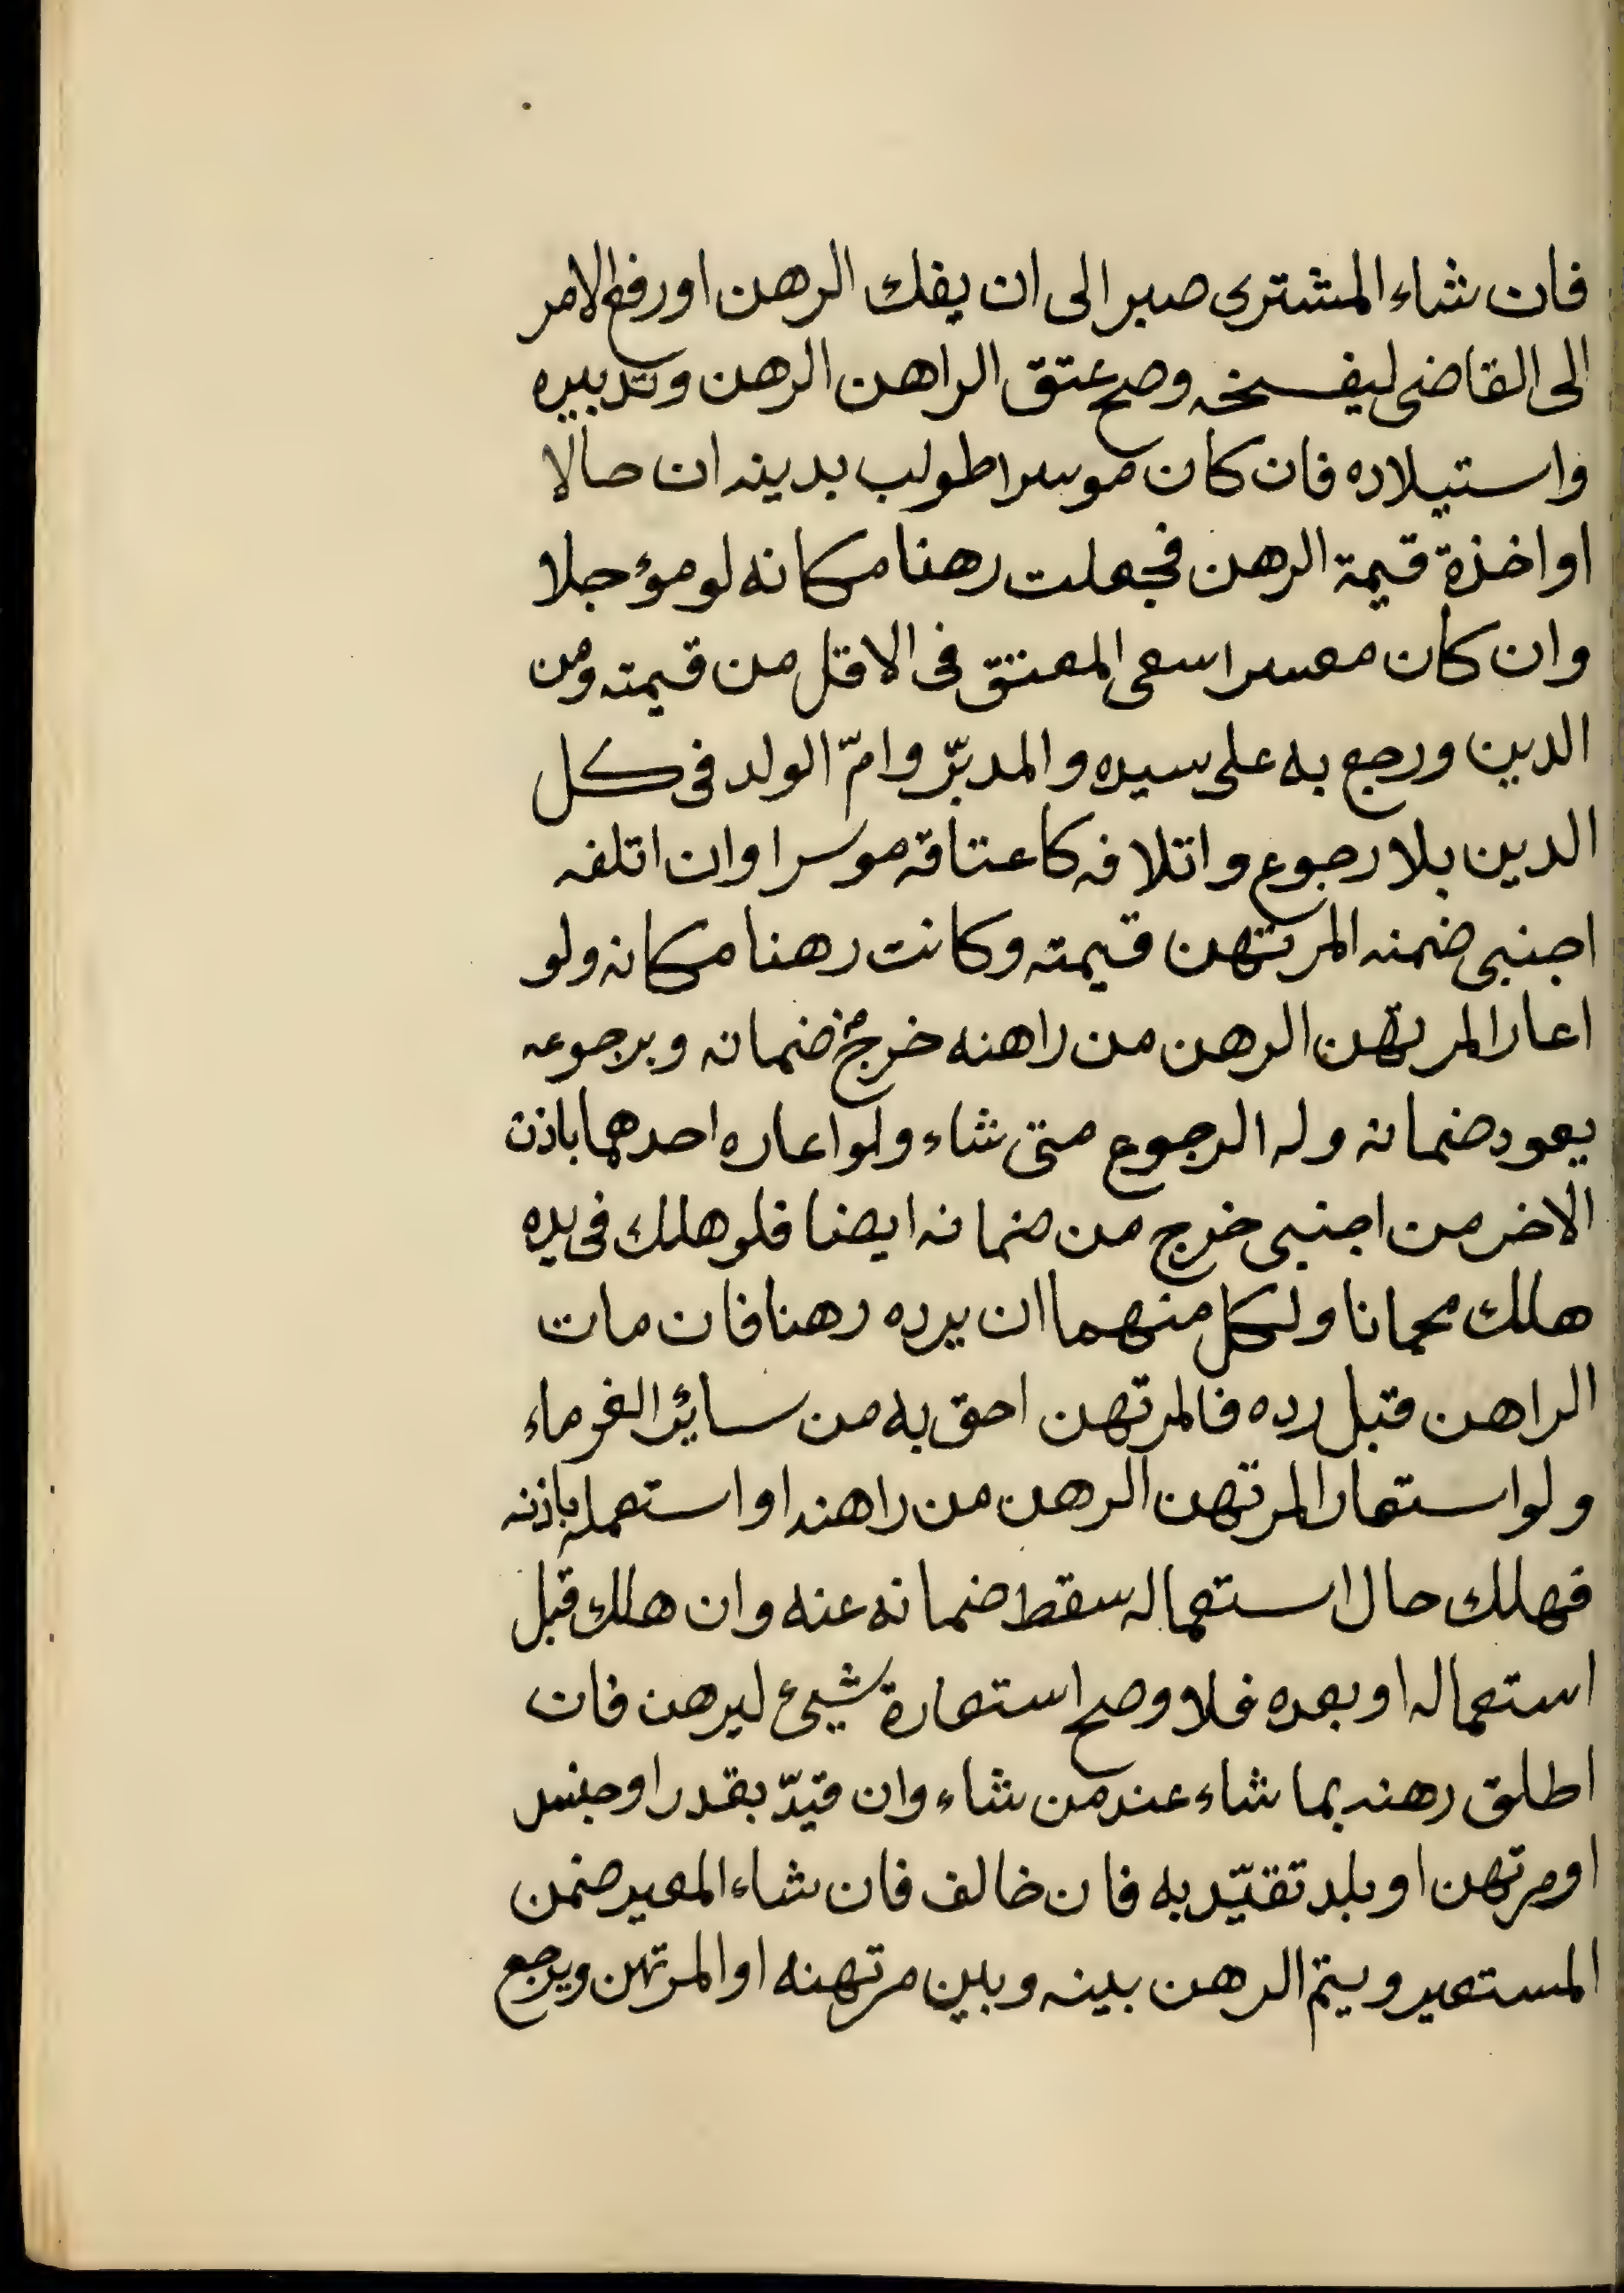 فان شاء المشترى صبر الى ان يفك الرهن اورفع الامر
الى القاضى ليفسخه وصح عتق الراهن الرهن وتدبيره
واستيلاده فان كان موسرا طولب بدينه ان حالا
او اخذة قيمة الرهن فجعلت رهنا مكانه لو مؤجلا
وان كان معسرا سعى المعتق فى الاقل من قيمته ومن
الدين ورجع به على سيده والمدبّر وامّ الولد فى كل
الدين بلا رجوع واتلافه كاعتاقه موسرا وان اتلفه
اجنبى ضمنه المرتهن قيمته وكانت رهنا مكانه ولو
اعار المرتهن الرهن من راهنه خرج من ضمانه وبرجوعه
يعود ضمانه وله الرجوع متى شاء ولو اعاره احدهما باذن
الاخر من اجنبى خرج من ضمانه ايضا فلو هلك فى يده
هلك مجانا ولكل منهما ان يرده رهنا فان مات
الراهن قبل رده فالمرتهن احق به من سائر الغرماء
ولو استعار المرتهن الرهن من راهنه او استعمله باذنه
فهلك حال استعماله سقط ضمانه عنه وان هلك قبل
استعماله او بعده فلا وصح استعارة شيئ ليرهن فان
اطلق رهنه بما شاء عند من شاء وان قيّد بقدر او جنس
او مرتهن او بلد تقيّد به فان خالف فان شاء المعير ضمن
المستعير ويتم الرهن بينه وبين مرتهنه او المرتهن ويرجع